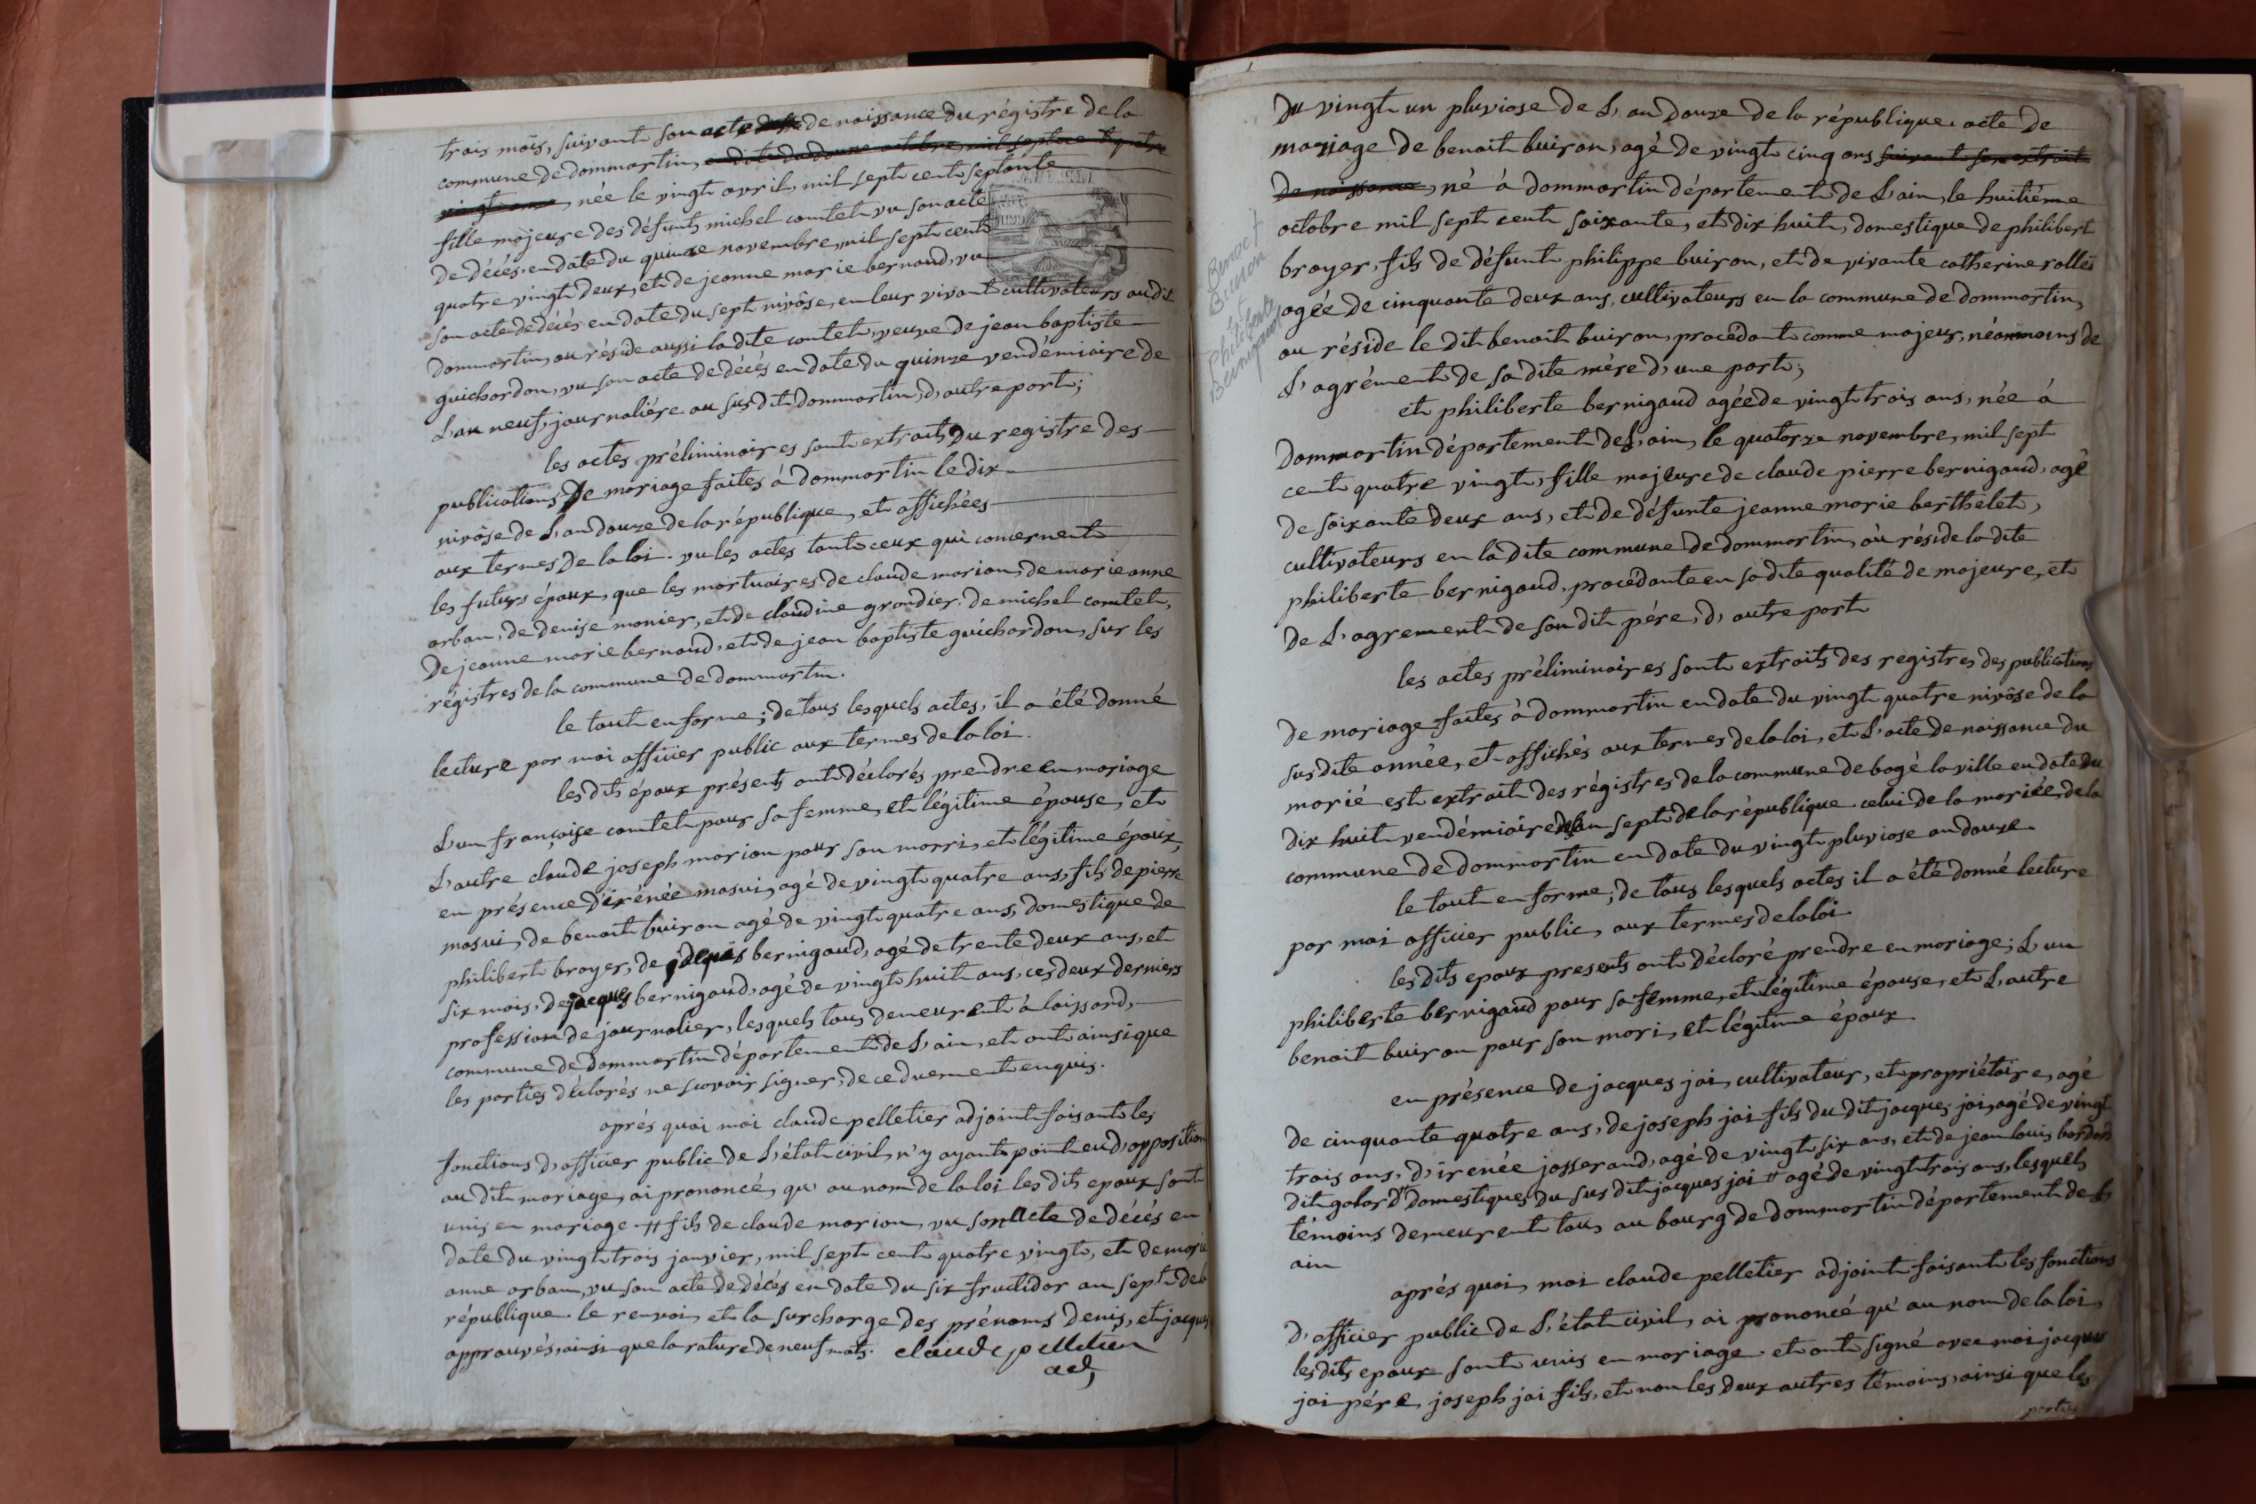 trois mois, suivant son acte de naissance du régistre de la
commune de dommartin,
née le vingt avril, mil sept cent septante
fille majeure des défunts michel comtet vu son acte
de décés en date du quinze novembre, mil sept cent
quatre vingt deux, et de jeanne marie bernaud, vu
son acte de décés en date du sept nivôse, en leur vivant cultivateurs au dit
dommartin, ou réside aussi la dite comtet, veuve de jean baptiste
guichardon, vu son acte de décés en date du quinze vendémiaire de
L'an neuf, journaliére au susdit dommartin, d'autre part;
les actes préliminaires sont extraits du registre des
publications de mariage faites à dommartin le dix
nivôse de L'an douze de la république, et affichées
aux termes de la loi. vu les actes tant ceux qui concernent
les futurs époux, que les mortuaires de claude marion, de marie anne
orban, de denise monier, et de claudine grandier, de michel comtet,
De jeanne marie bernaud, et de jean baptiste guichardon, sur les
régistres de la commune de dommartin.
le tout en forme; de tous lesquels actes, il a été donné
lecture par moi officier public aux termes de la loi.
les dits époux présents ont déclarés prendre en mariage
L'un françoise comtet pour sa femme, et légitime épouse, et
L'autre claude joseph marion pour son marri, et légitime époux,
en présence d'irénée masui, agé de vingt quatre ans, fils de pierre
masui, de benoit buiron agé de vingt quatre ans, domestique de
philibert broyer, de bernigaud, agé de trente deux ans, et
six mois, de jacques bernigaud, agé de vingt huit ans, ces deux derniers
profession de journalier, lesquels tous demeurent à loissard,
commune de dommartin département de L'ain, et ont ainsi que
les parties déclarés ne scavoir signer, de ce duement enquis.
aprés quoi moi claude pelletier adjoint faisant les
fonctions d'officier public de L'état civil, n'y ayant point eu d'opposition
au dit mariage, ai prononcé, qu'au nom de la loi les dits epoux sont
unis en mariage # fils de claude marion, vu son acte de décés en
date du vingt trois janvier, mil sept cent quatre vingt, et de marie
anne orban, vu son acte de décés en date du six fructidor an sept de la
république. le renvoi, et la surcharge des prénoms denis, et jacques
approuvés, ainsi que la rature de neuf mots. claude pelletier
adj
Du vingt un pluviose de L'an douze de la république. acte de
mariage de benoit buiron, agé de vingt cinq ans suivant son extrait
de naissance, né à dommartin département de L'ain, le huitiéme
octobre mil sept cent soixante, et dix huit, domestique de philibert
broyer, fils de défunt philippe buiron, et de vivante catherine rollet
agée de cinquante deux ans, cultivateurs en la commune de dommartin,
ou réside le dit benoit buiron, procédant comme majeur, néanmoins de
L'agrément de sa dite mére d'une part;
Benoit
Buiron
Philiberte
Bernigaud
et philiberte bernigaud agée de vingt trois ans, née à
dommartin département de L'ain, le quatorze novembre, mil sept
cent quatre vingt, fille majeure de claude pierre bernigaud, agé
de soixante deux ans, et de défunte jeanne marie berthelet,
cultivateurs en la dite commune de dommartin, où réside la dite
philiberte bernigaud, procédante en sa dite qualité de majeure, et
de L'agrement de son dit pére, d'autre part
les actes préliminaires sont extraits des registres des publications
de mariage faites à dommartin en date du vingt quatre nivôse de la
susdite année, et affichés aux termes de la loi, et L'acte de naissance du
marié est extrait des régistres de la commune de bagé la ville en date du
dix huit vendémiaire an sept de la république. celui de la mariée, de la
commune de dommartin en date du vingt pluviose an douze.
le tout en forme; de tous lesquels actes il a été donné lecture
par moi officier public, aux termes de la loi
les dits epoux presents ont déclaré prendre en mariage; L'un
philiberte bernigaud pour sa femme, et légitime épouse, et L'autre
benoit buiron pour son mari, et légitime époux
en présence de jacques jai, cultivateur, et propriétaire, agé
de cinquante quatre ans, de joseph jai fils du dit jacques jai, agé de vingt
trois ans, d'irenée josserand, agé de vingt six ans, et de jean louis
dit domestiques du sus dit jacques jai # agé de vingt trois ans, lesquels
témoins demeurent tous au bourg de dommartin département de L'
ain
aprés quoi, moi claude pelletier adjoint faisant les fonctions
d'officier public de L'état civil, ai prononcé qu'au nom de la loi,
les dits epoux sont unis en mariage. et ont signé avec moi jacques
jai pére, joseph jai fils, et non les deux autres témoins, ainsi que les
parties